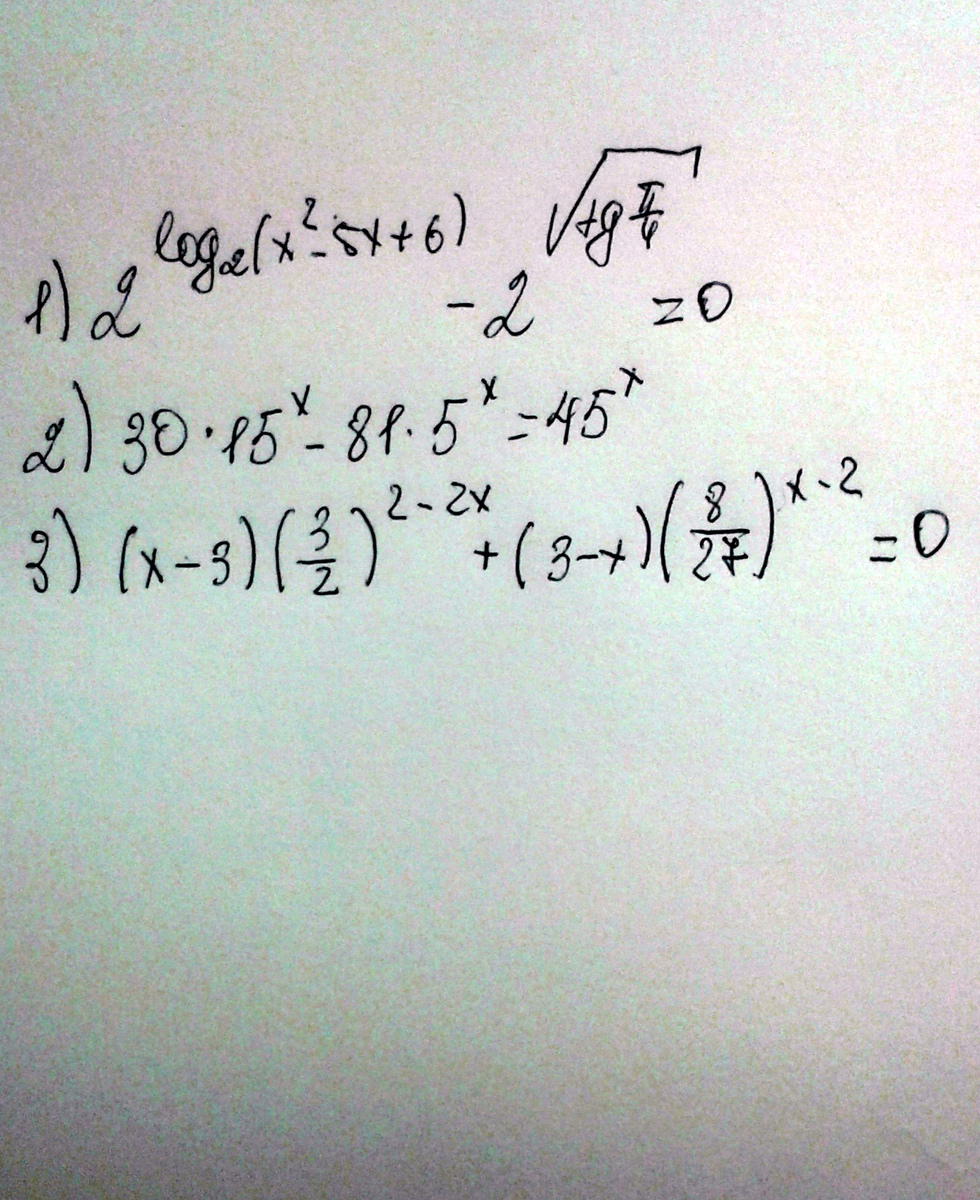 1) 2^(log₂(x²-5x+6)) - 2^(√(tg π/4)) = 0
2) 30·15^x - 81·5^x = 45^x
3) (x-3)(3/2)^(2-2x) + (3-x)(8/27)^(x-2) = 0